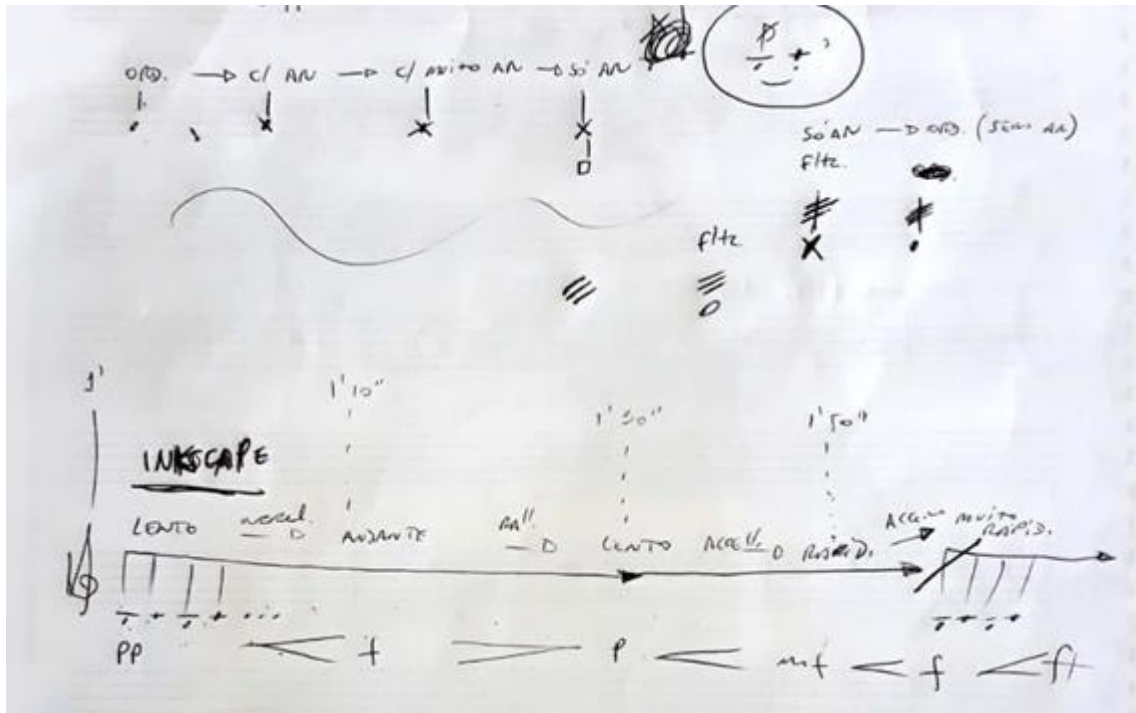 ORD. → C/ AR → C/ MUITO AR → SÓ AR
SÓ AR → ORD. (SEM AR)
fltz.
fltz
1'
1'10"
1'50"
INKSCAPE
LENTO accel. → ANDANTE RALL. → LENTO ACCEL. → RÁPID. ACCEL. → MUITO RÁPID.
PP f P mf f ff